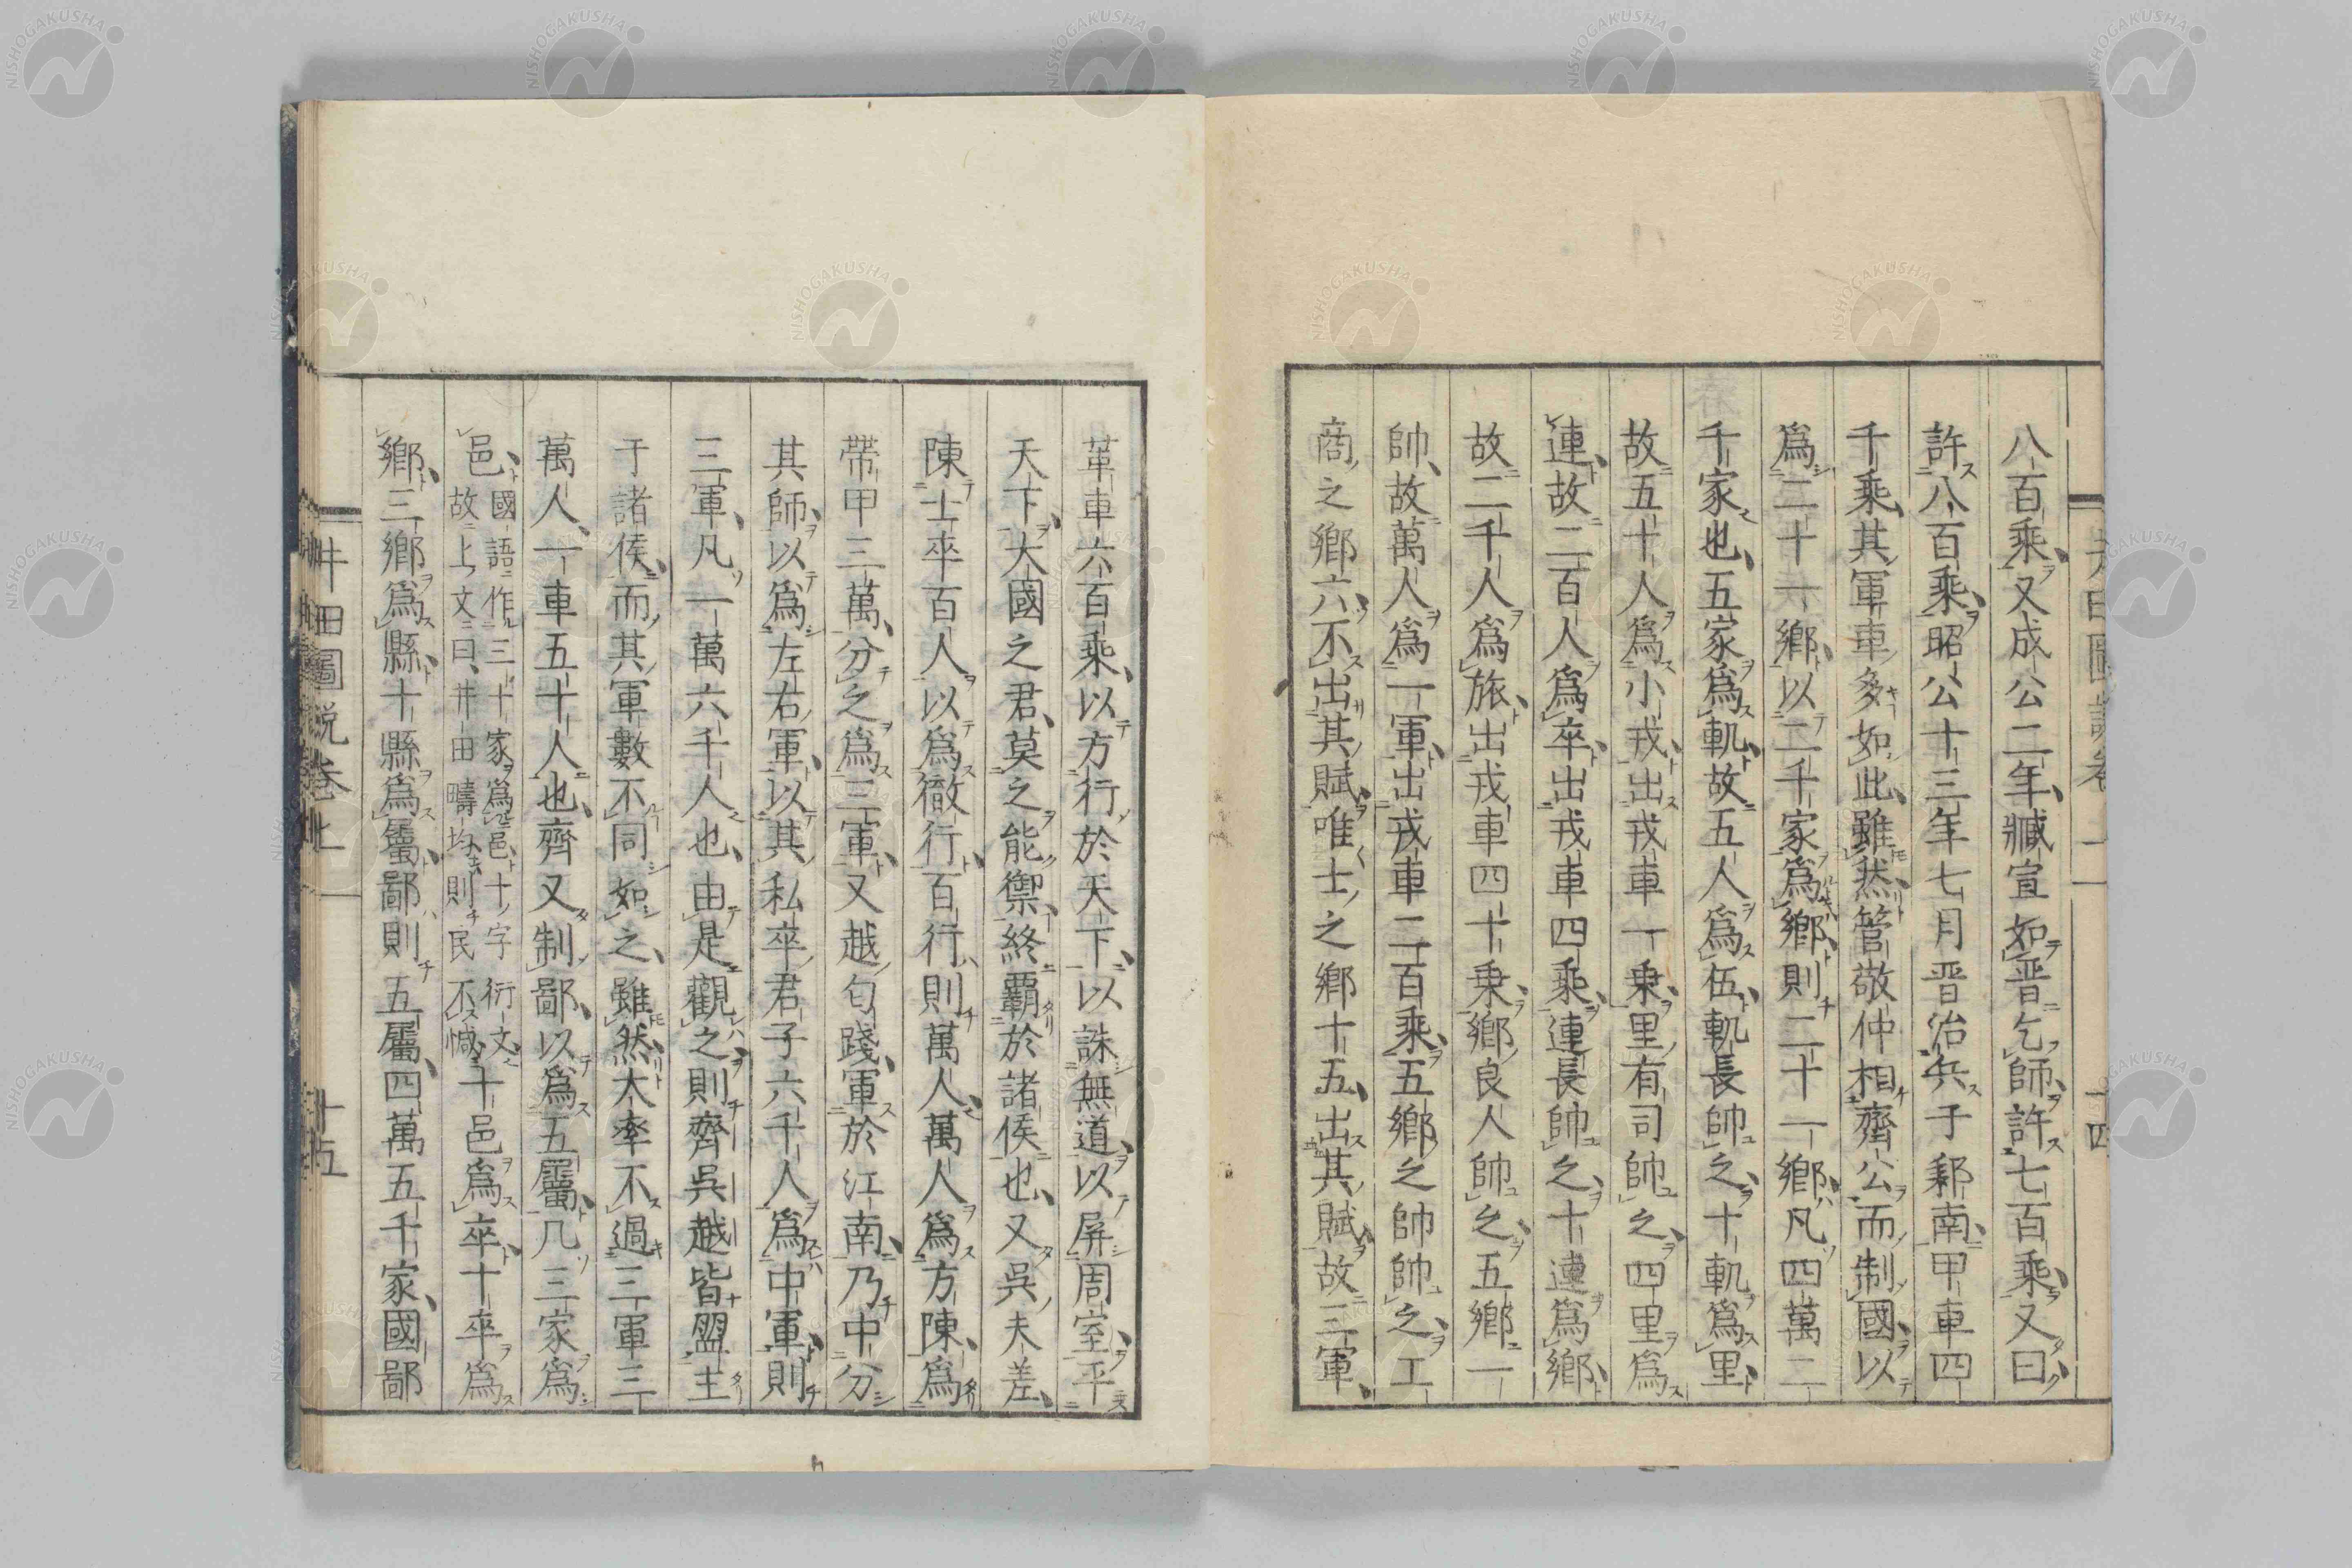 八百乘又成公二年臧宣如晋乞師許七百乘又曰
許八百乘昭公十三年七月晋治兵于邾南甲車四
千乘其軍車多如此雖然管敬仲相齊公而制國以
爲二十一鄉以二千家爲鄉則二十一鄉凡四萬二
千家也五家爲軌故五人爲伍軌長帥之十軌爲里
故五十人爲小戎出戎車一乗里有司帥之四里爲
連故二百人爲卒出戎車四乘連長帥之十連爲鄉
故二千人爲旅出戎車四十乗鄉良人帥之五鄉一
帥故萬人爲一軍出戎車二百乘五鄉之帥帥之工
商之鄉六不出其賦唯士之鄉十五出其賦故三軍
革車六百乘以方行於天下以誅無道以屏周室平
天下大國之君莫之能禦終覇於諸侯也又吳夫差
陳士卒百人以爲徹行百行則萬人萬人爲方陳爲
帶甲三萬分之爲三軍又越勾踐軍於江南乃中分
其師以爲左右軍以其私卒君子六千人爲中軍則
三軍凡一萬六千人也由是觀之則齊吳越皆盟主
于諸侯而其軍數不同如之雖然大率不過三軍三
萬人一車五十人也齊又制鄙以爲五屬凡三家爲
邑國語作三十家爲邑十字衍文故上文曰井田疇均則民不憾十邑爲卒十卒爲
鄉三鄉爲縣十縣爲屬鄙則五屬四萬五千家國鄙
井田圖説卷上
十五